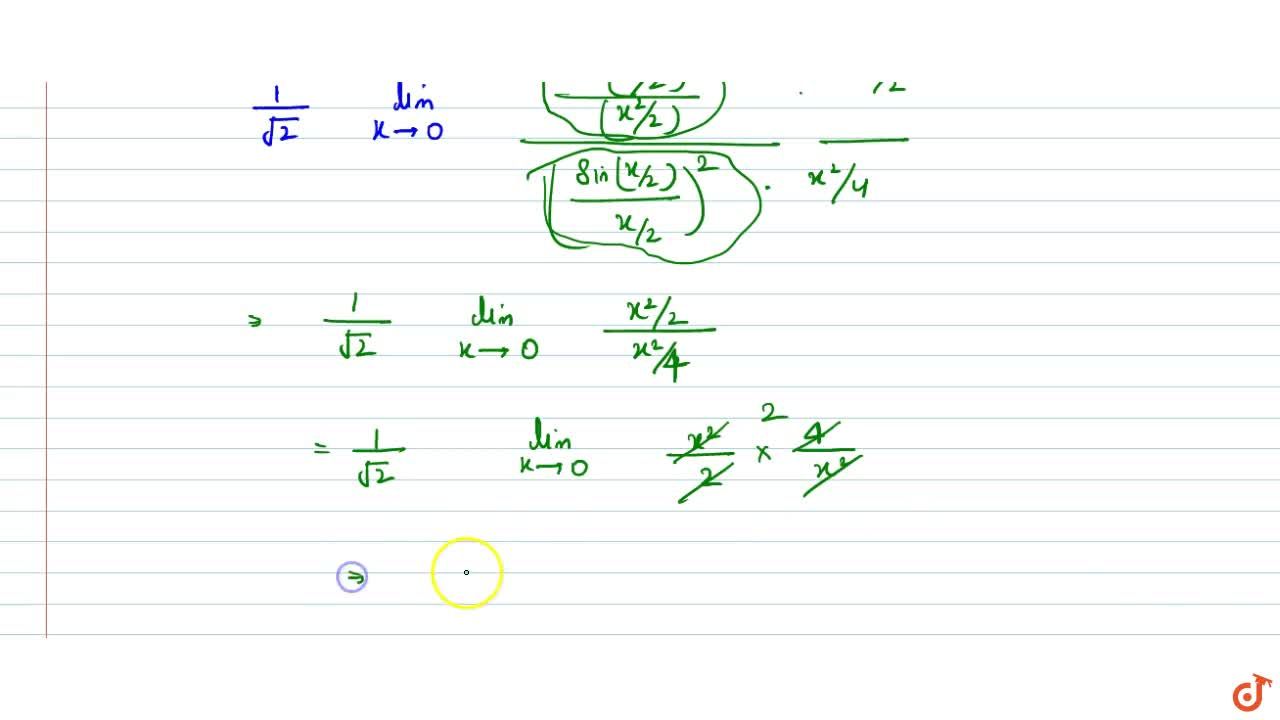 1/√2 lim x→0 (x²/2)
(sin(x/2) / x/2)² . x²/4
⇒ 1/√2 lim x→0 x²/2 / x²/4
= 1/√2 lim x→0 x²/2 × 4/x² 2
⇒